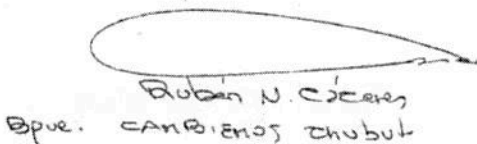 Rubén N. Cáceres
Bque. CAMBIEMOS Chubut